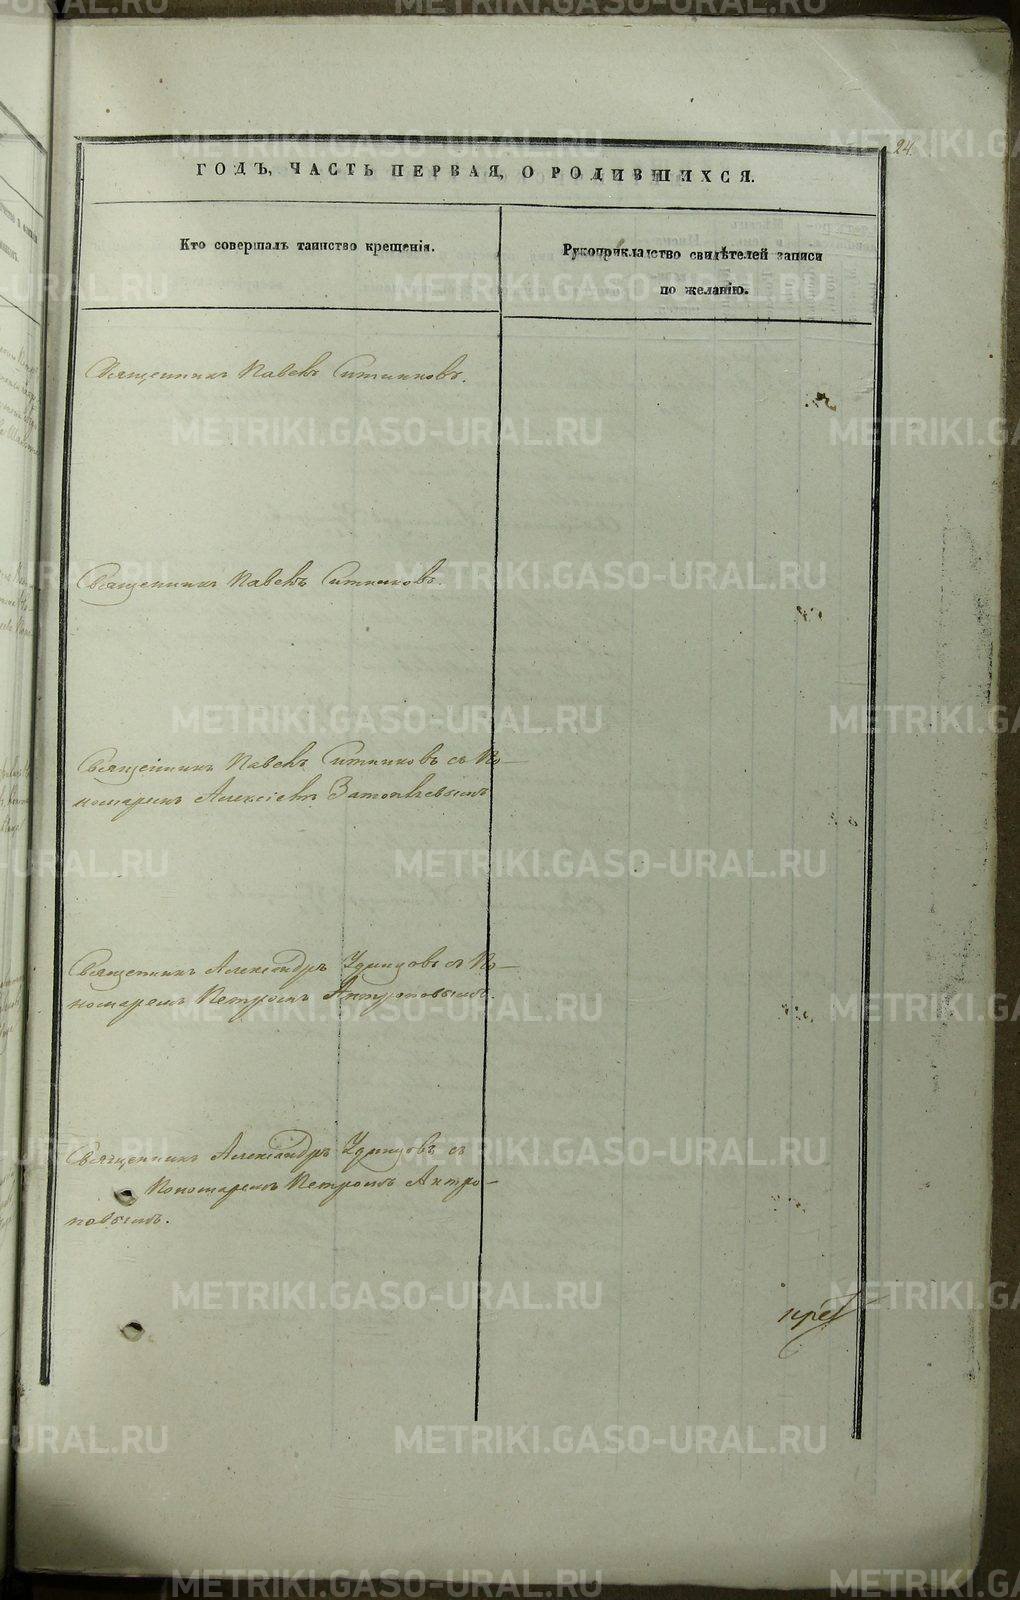 24
ГОДЪ, ЧАСТЬ ПЕРВАЯ, О РОДИВШИХСЯ.
Кто совершалъ таинство крещенія.
Рукоприкладство свидѣтелей записи
по желанію.
Священникъ Павелъ Ситниковъ.
Священникъ Павелъ Ситниковъ.
Священникъ Павелъ Ситниковъ съ По-
номаремъ Алексіемъ
Священникъ Александръ Удинцовъ съ По-
номаремъ Петромъ Антроповымъ.
Священникъ Александръ Удинцовъ съ
Пономаремъ Петромъ Антро-
повымъ.
METRIKI.GASO-URAL.RU